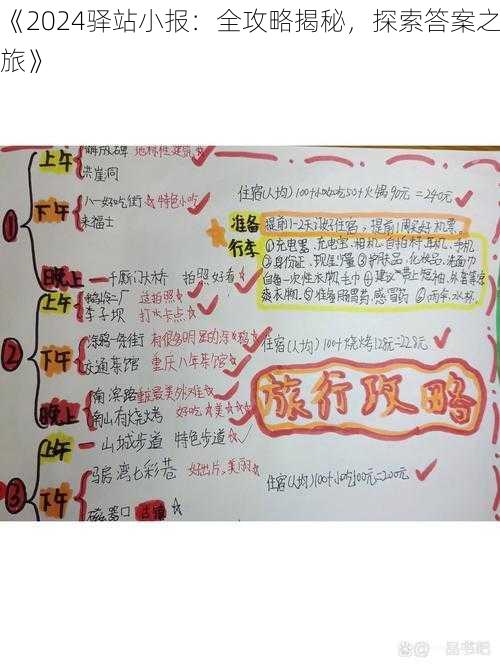 《2024驿站小报：全攻略揭秘，探索答案之
旅》
①
上午
解放碑 地标性建筑
洪崖洞
下午
八一好吃街 特色小吃
朱福士
晚上
千厮门大桥 拍照好看
②
上午
鹅岭二厂
李子坝 打卡点
下午
涂鸦一条街
交通茶馆 重庆八年茶馆
晚上
南滨路
南山有烧烤 好吃
③
上午
山城步道 特色步道
下午
马房湾七彩巷 好出片，美丽
磁器口 古镇
住宿(人均)100+小吃50+火锅90元=240元
准备
行李
提前1-2天订好住宿，提前1周买好机票。
①充电器、充电宝、相机、自拍杆、耳机、手机
②身份证、现金 ③护肤品、化妆品、洗面巾
一次性水 毛巾 ④建议带上短袖、外套等凉
爽衣物。⑤准备肠胃药，感冒药 ⑥雨伞、水杯
住宿(人均)100+烧烤128元=228元
旅行攻略
住宿(人均)100+小吃100元=200元
@一品书吧